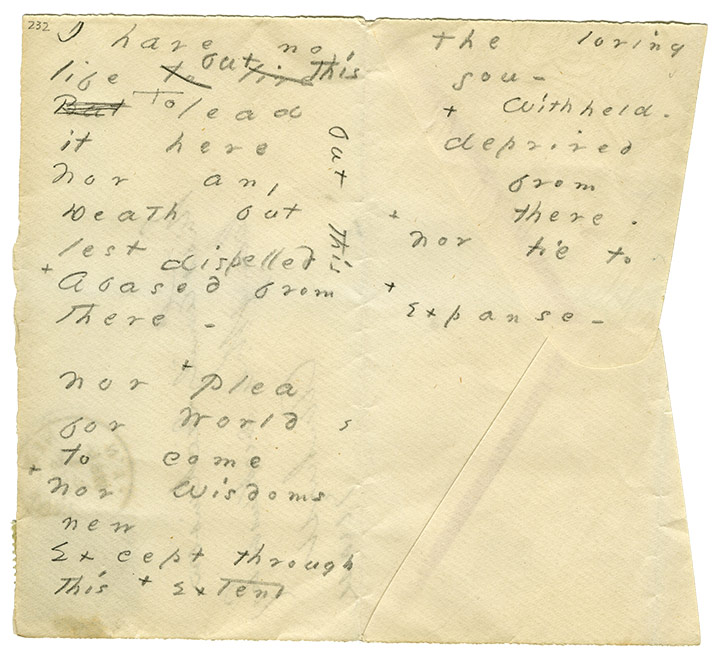 232
I have no
life to live but This
But To lead
it here
nor any
Death but
lest dispelled
+ Abased from
There -
nor + Plea
for Worlds
to come
+ nor Wisdoms
new
Except through
This + Extent
but This
the loving
you -
+ Withheld -
deprived
from
+ there -
nor tie to
+ Expanse -